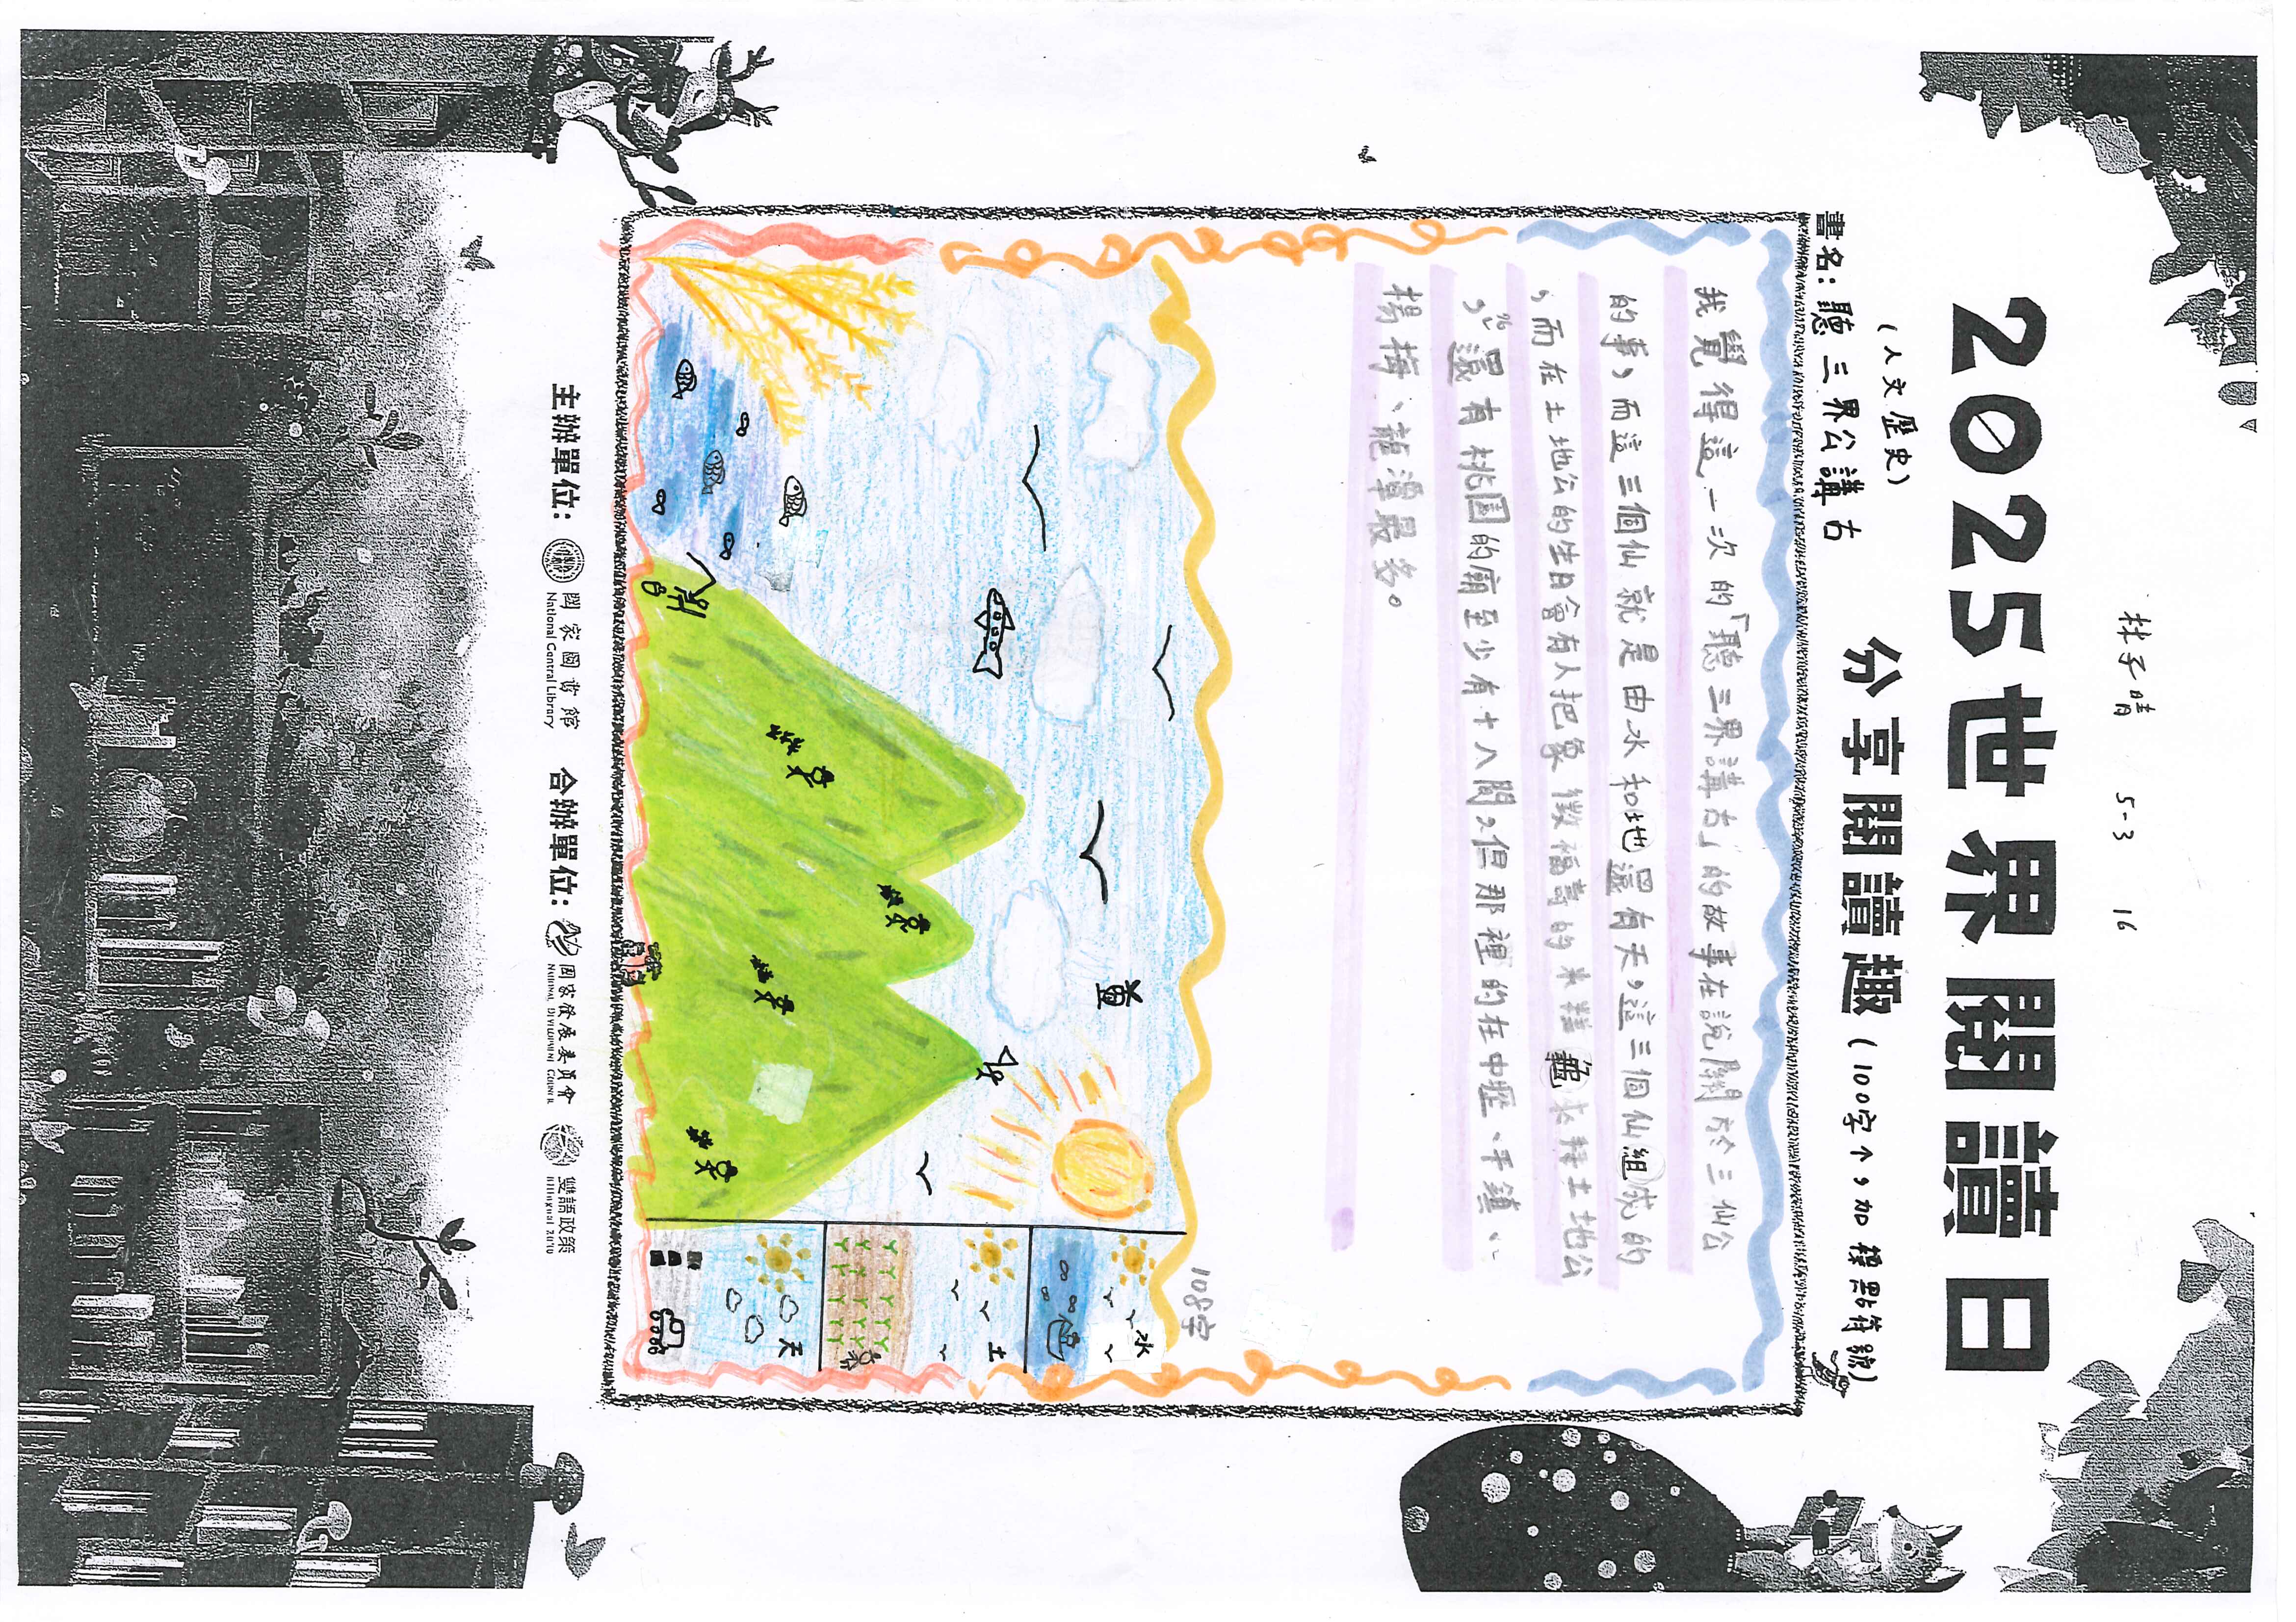 林子晴 5-3 16
2025世界閱讀日
(人文歷史)
分享閱讀趣(100字↑,加標點符號)
書名:聽三界公講古
我覺得這一次的「聽三界講古」的故事在說關於三仙公
的事,而這三個仙就是由水和地還有天,這三個仙組成的
,而在土地公的生日會有人把象徵福壽的米糕龜去拜土地公
,還有桃園的廟至少有十八間,但那裡的在中壢、平鎮、
楊梅、龍潭最多。
108字
水
土
天
主辦單位:國家圖書館 合辦單位:國家發展委員會 雙語政策
National Central Library National Development Council Bilingual 2030